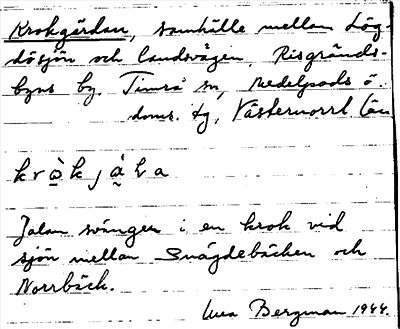 Krokgärdan, samhälle mellan Lög-
dösjön och landsvägen. Risgränds-
byns by. Timrå sn, Medelpads ö.
doms. tg, Västernorrl län
k r ò k j á l a
Jalan svänger i en krok vid
sjön mellan Snägdebäcken och
Norrbäck.
Bergman 1944.